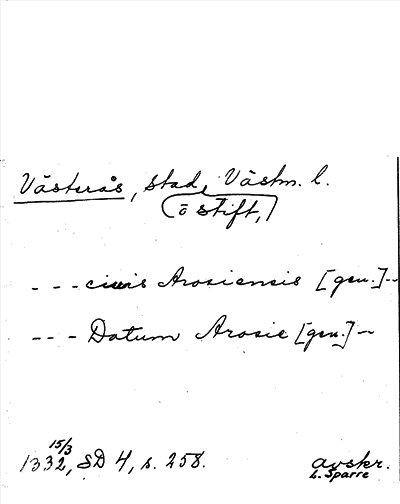 Västerås, stad, Västm. l.
(o stift,)
- - - civis Arosiensis [gen.] --
- - - Datum Arosie [gen.] --
15/3
1332, SD 4, s. 258.
avskr.
L. Sparre